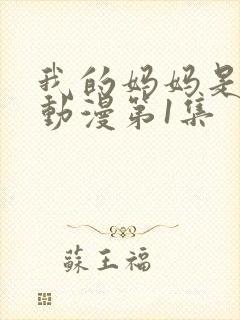 我的妈妈是
動漫第1集
蘇王福